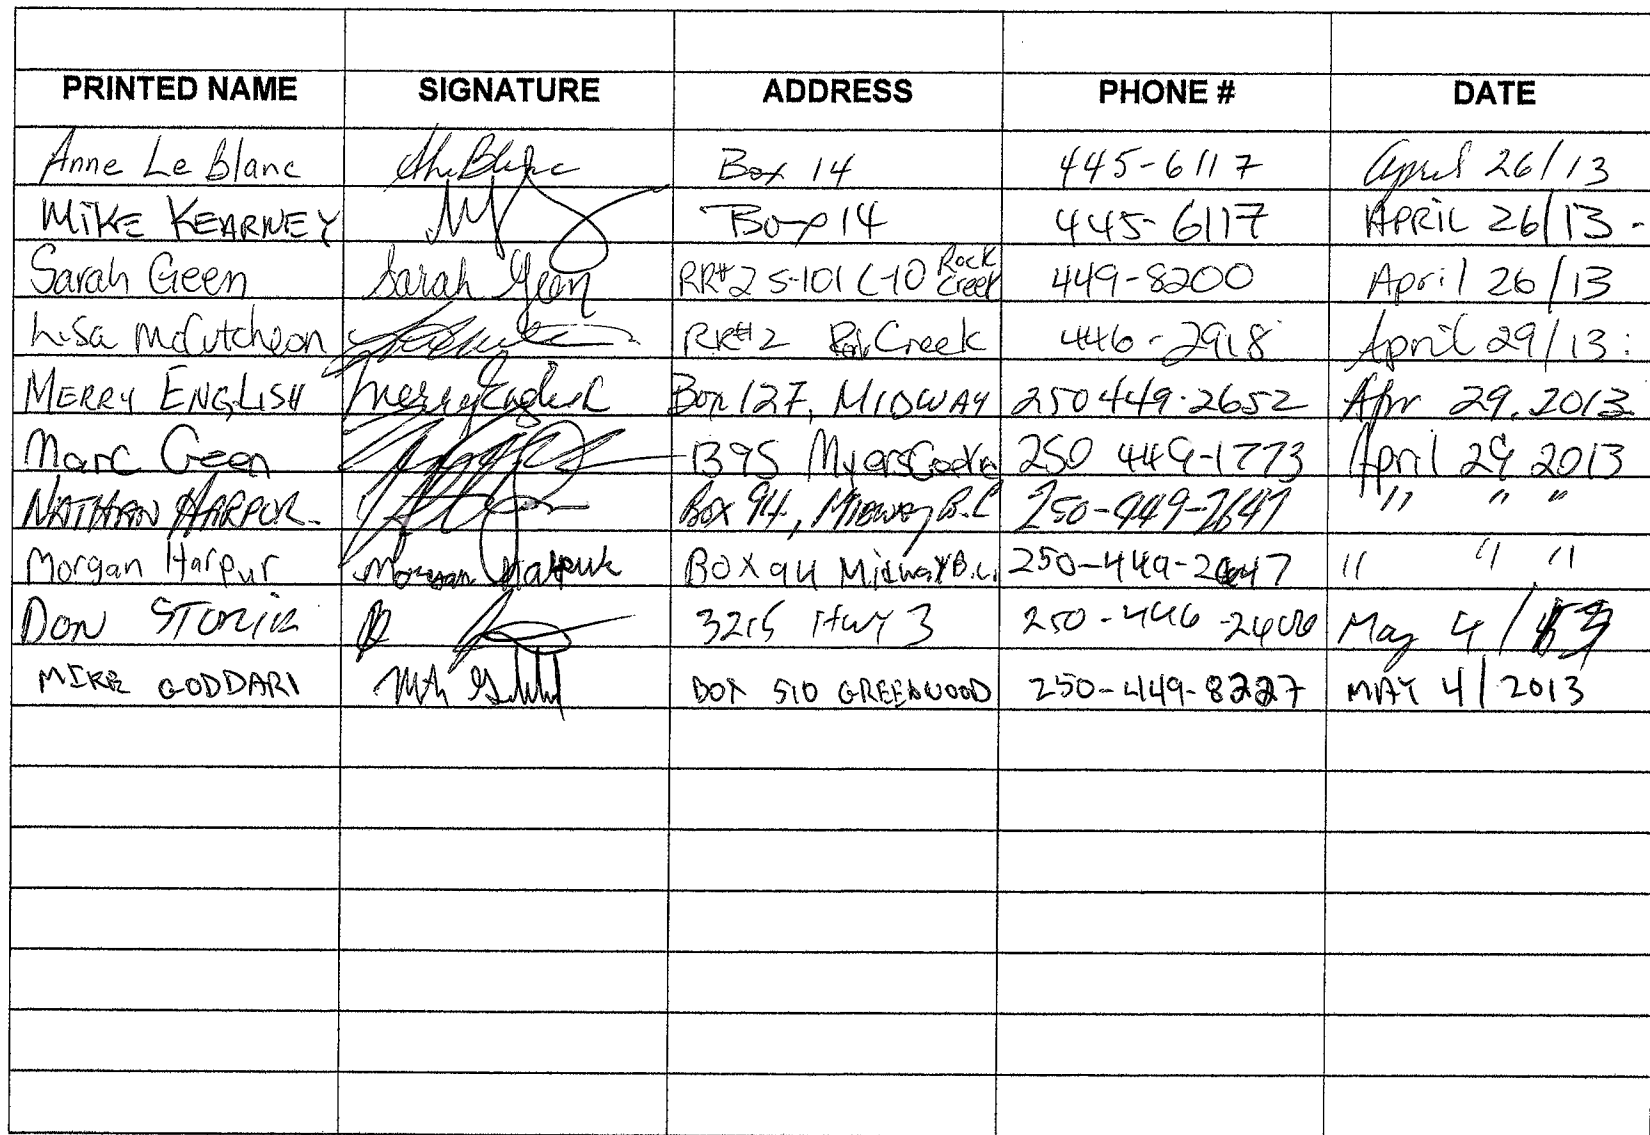 PRINTED NAME SIGNATURE ADDRESS PHONE # DATE
Anne Le Blanc Box 14 445-6117 April 26/13
MIKE KEARNEY Box 14 445-6117 APRIL 26/13 -
Sarah Geen Sarah Geen RR#2 S-101 C-10 Rock Creek 449-8200 April 26/13
Lisa McCutcheon RR#2 Creek 446-2918 April 29/13
MERRY ENGLISH Merry English Box 127, MIDWAY 250 449-2652 Apr 29, 2013
Marc Geen 1395 Myers 250 449-1773 April 29 2013
NATHAN HARPUR. Box 94, Midway B.C 250-449-2647 " " "
Morgan Harpur Morgan Harpur BOX 94 Midway B.C. 250-449-2647 " " "
DON 3215 HWY 3 250-446 May 4/13
MIKE GODDARD BOX 510 GREENWOOD 250-449-8227 MAY 4/2013